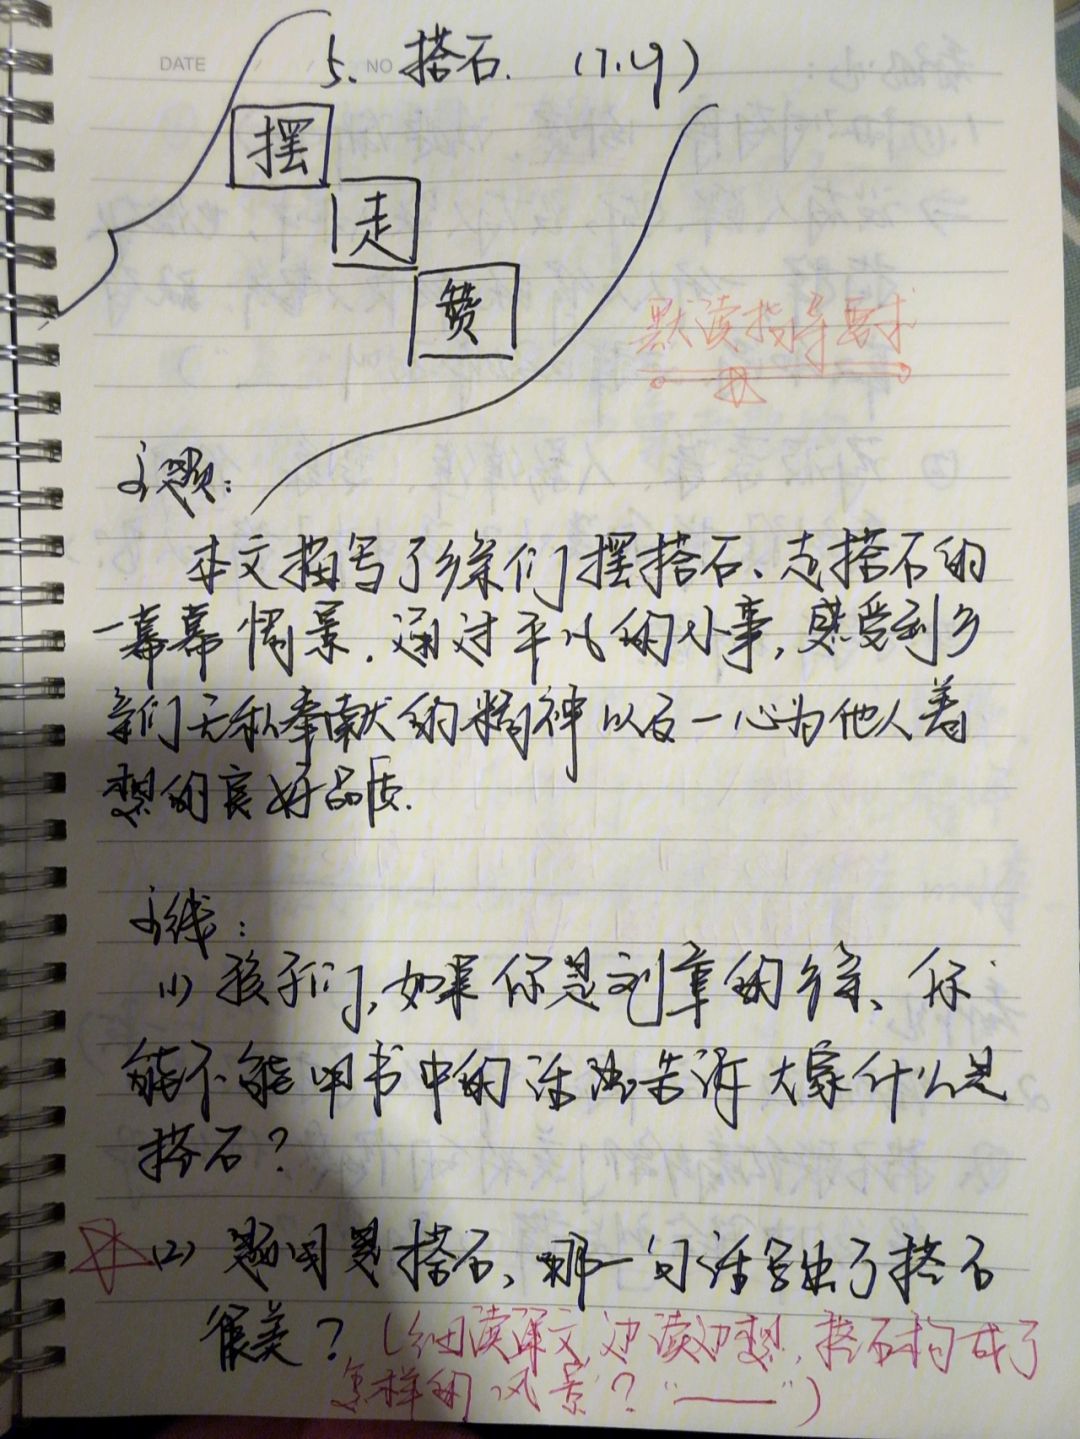 DATE / / NO
5. 搭石. (1.4)
摆
走
赞
默读指导要求
主题:
本文描写了乡亲们摆搭石、走搭石的
一幕幕情景.通过平凡的小事,感受到乡
亲们无私奉献的精神以及一心为他人着
想的良好品质.
主线:
(1) 孩子们,如果你是刘章的乡亲、你
能不能用书中的话来告诉大家什么是
搭石?
(2) 题目是搭石,哪一句话写出了搭石
很美?(细读课文,边读边想,搭石构成了
怎样的风景?“——”)